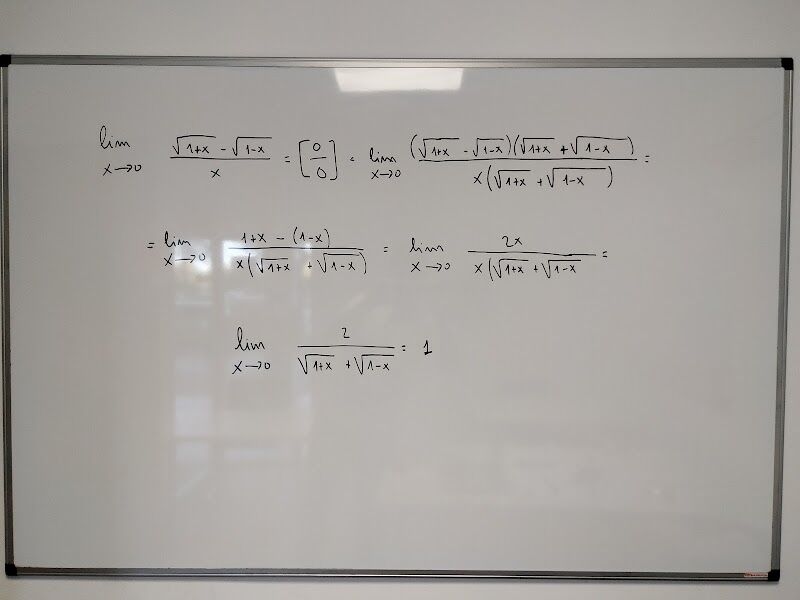 lim x→0 (√(1+x) - √(1-x))/x = [0/0] = lim x→0 ((√(1+x) - √(1-x))(√(1+x) + √(1-x)))/(x(√(1+x) + √(1-x))) =
= lim x→0 (1+x - (1-x))/(x(√(1+x) + √(1-x))) = lim x→0 2x/(x(√(1+x) + √(1-x)) =
lim x→0 2/(√(1+x) + √(1-x)) = 1